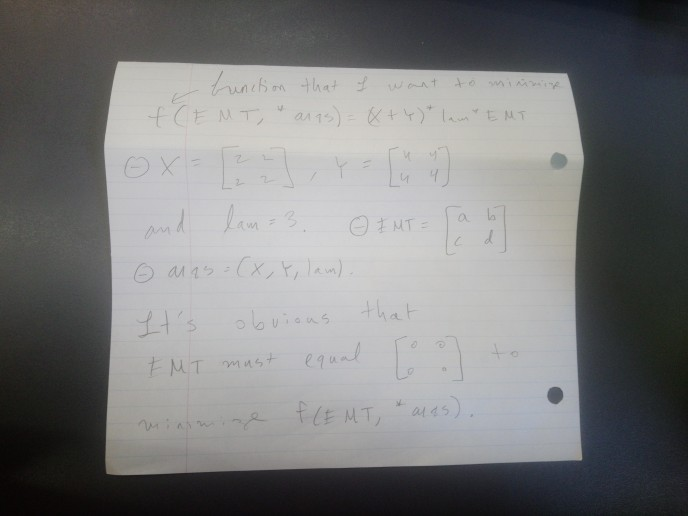 function that I want to minimize
f(EMT, *args) = (X+Y)*lam*EMT
X = [2 2 2 2], Y = [4 4 4 4]
and lam = 3. EMT = [a b c d]
args = (X, Y, lam).
It's obvious that
EMT must equal [0 0 0 0] to
minimize f(EMT, *args).